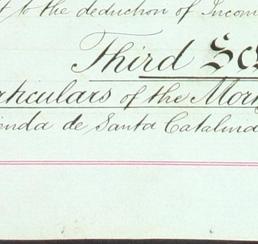 to the deduction of Incom
Third Sc
rticulars of the Mort
ienda de Santa Catalina